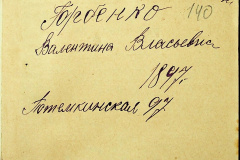 Горбенко 140
Валентина Власьевна
1897 г.
Потемкинская 97.